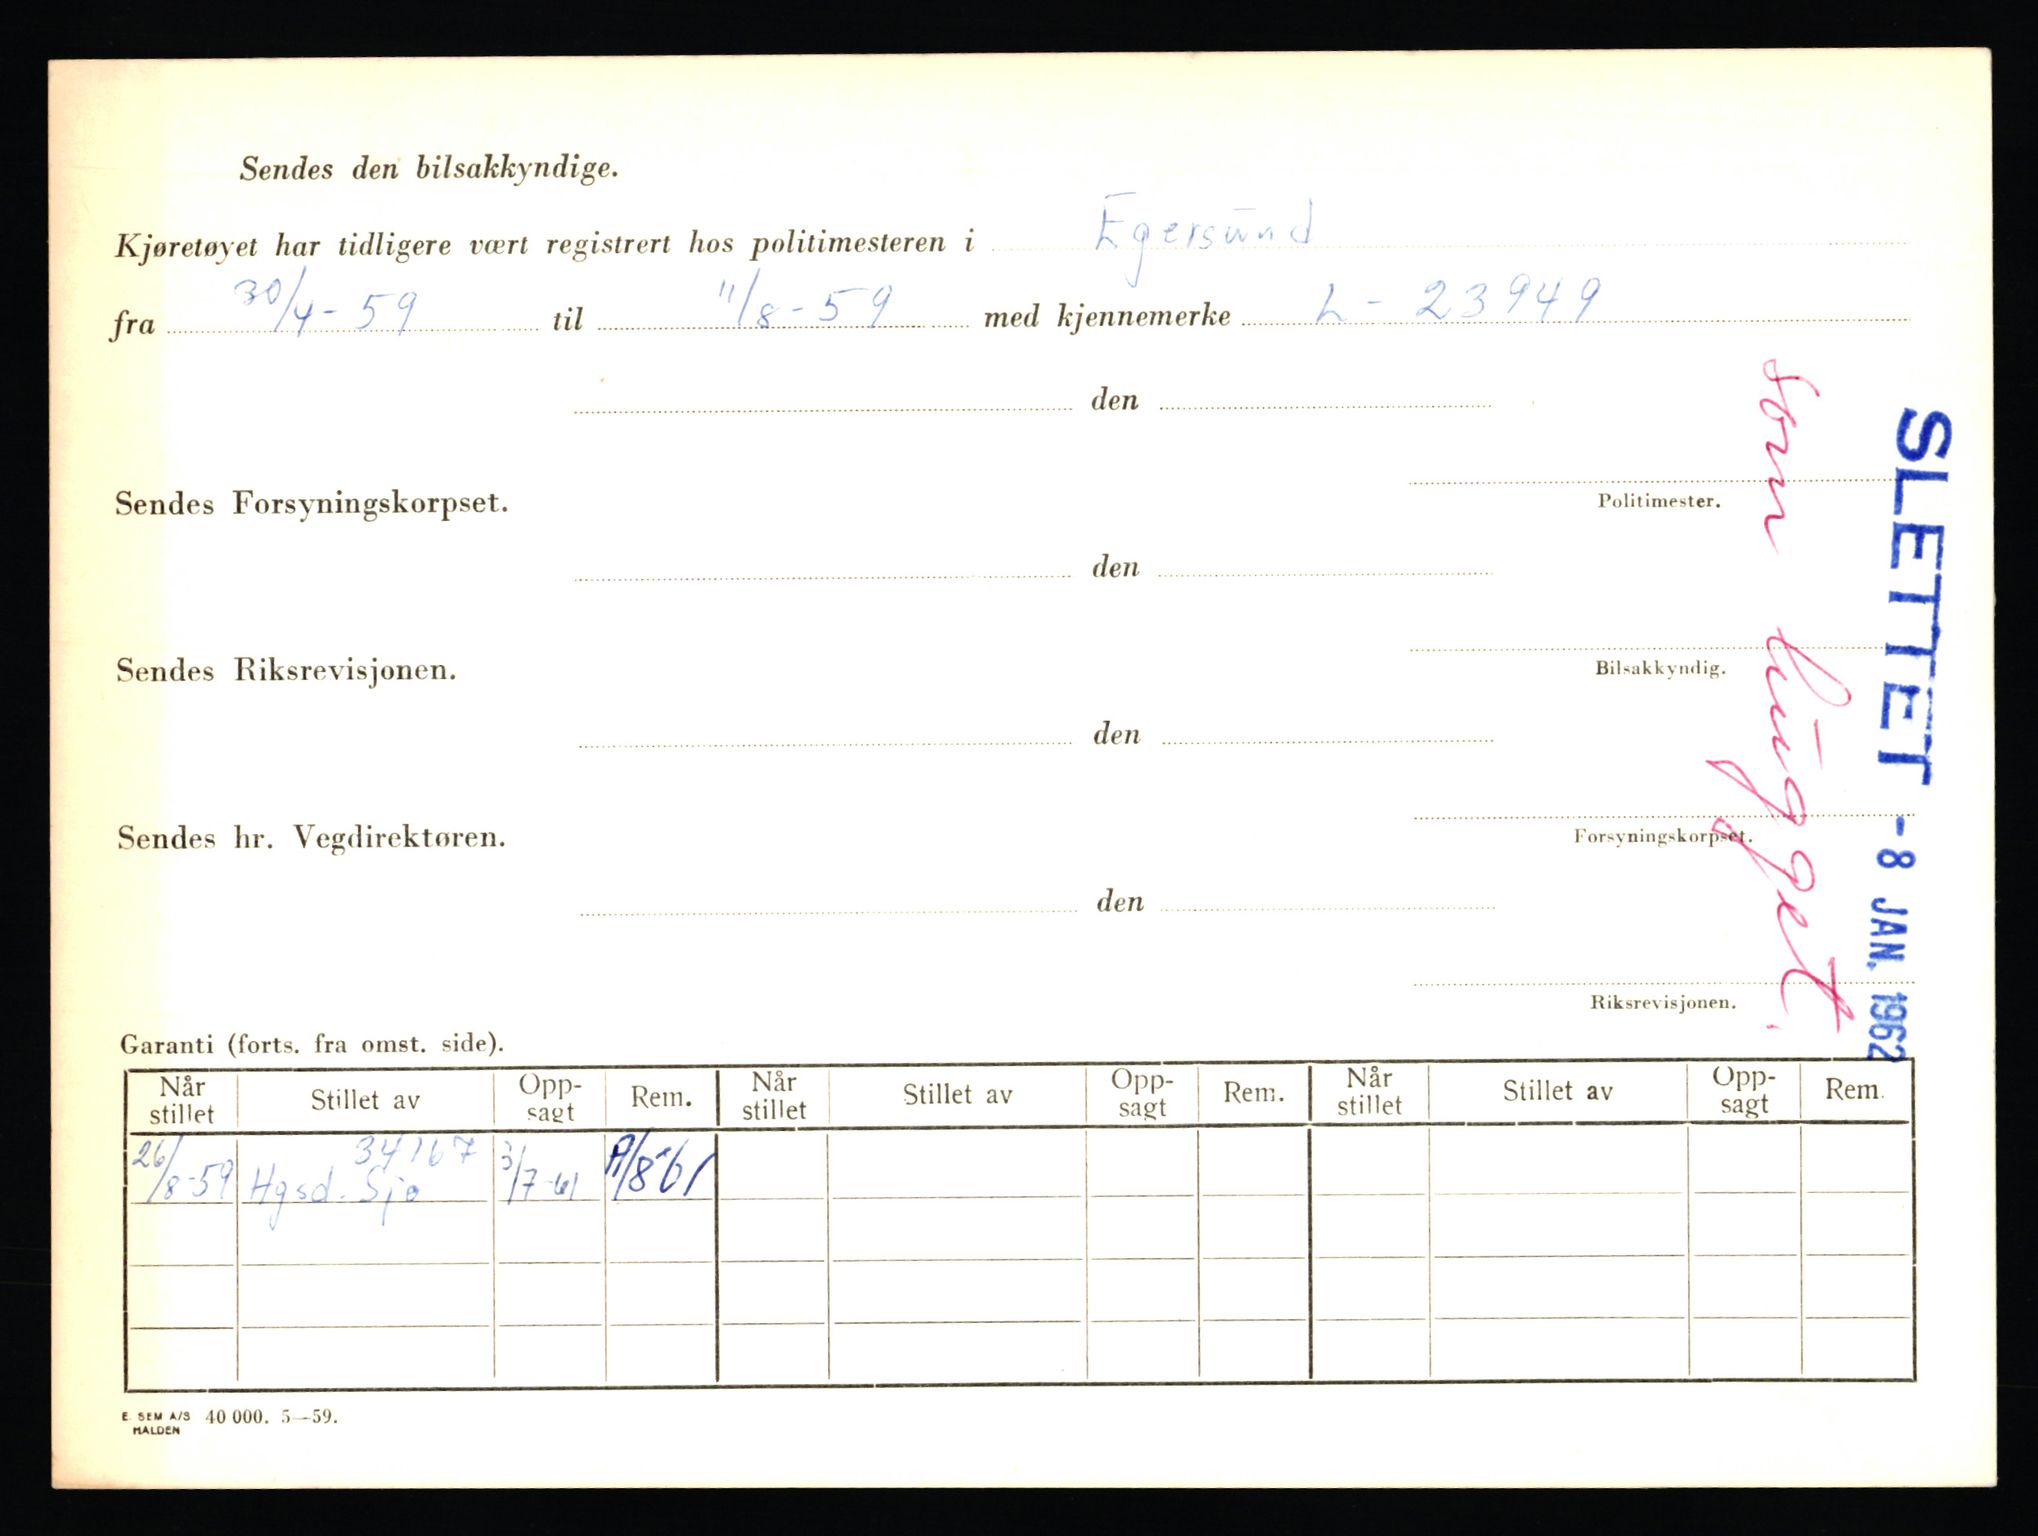 Sendes den bilsakkyndige.
Kjøretøyet har tidligere vært registrert hos politimesteren i Egersund
fra 30/4-59 til 11/8-59 med kjennemerke L-23949
den
Politimester.
Sendes Forsyningskorpset.
den
Bilsakkyndig.
Sendes Riksrevisjonen.
den
Forsyningskorpset.
Sendes hr. Vegdirektøren.
den
Riksrevisjonen.
SLETTET -8 JAN. 1962
som hugget.
Garanti (forts. fra omst. side).
Når stillet Stillet av Opp-sagt Rem. Når stillet Stillet av Opp-sagt Rem. Når stillet Stillet av Opp-sagt Rem.
34167
26/8-59 Hgsd. Sjø 3/7-61 /8-61
E. SEM A/S 40 000. 5—59.
HALDEN